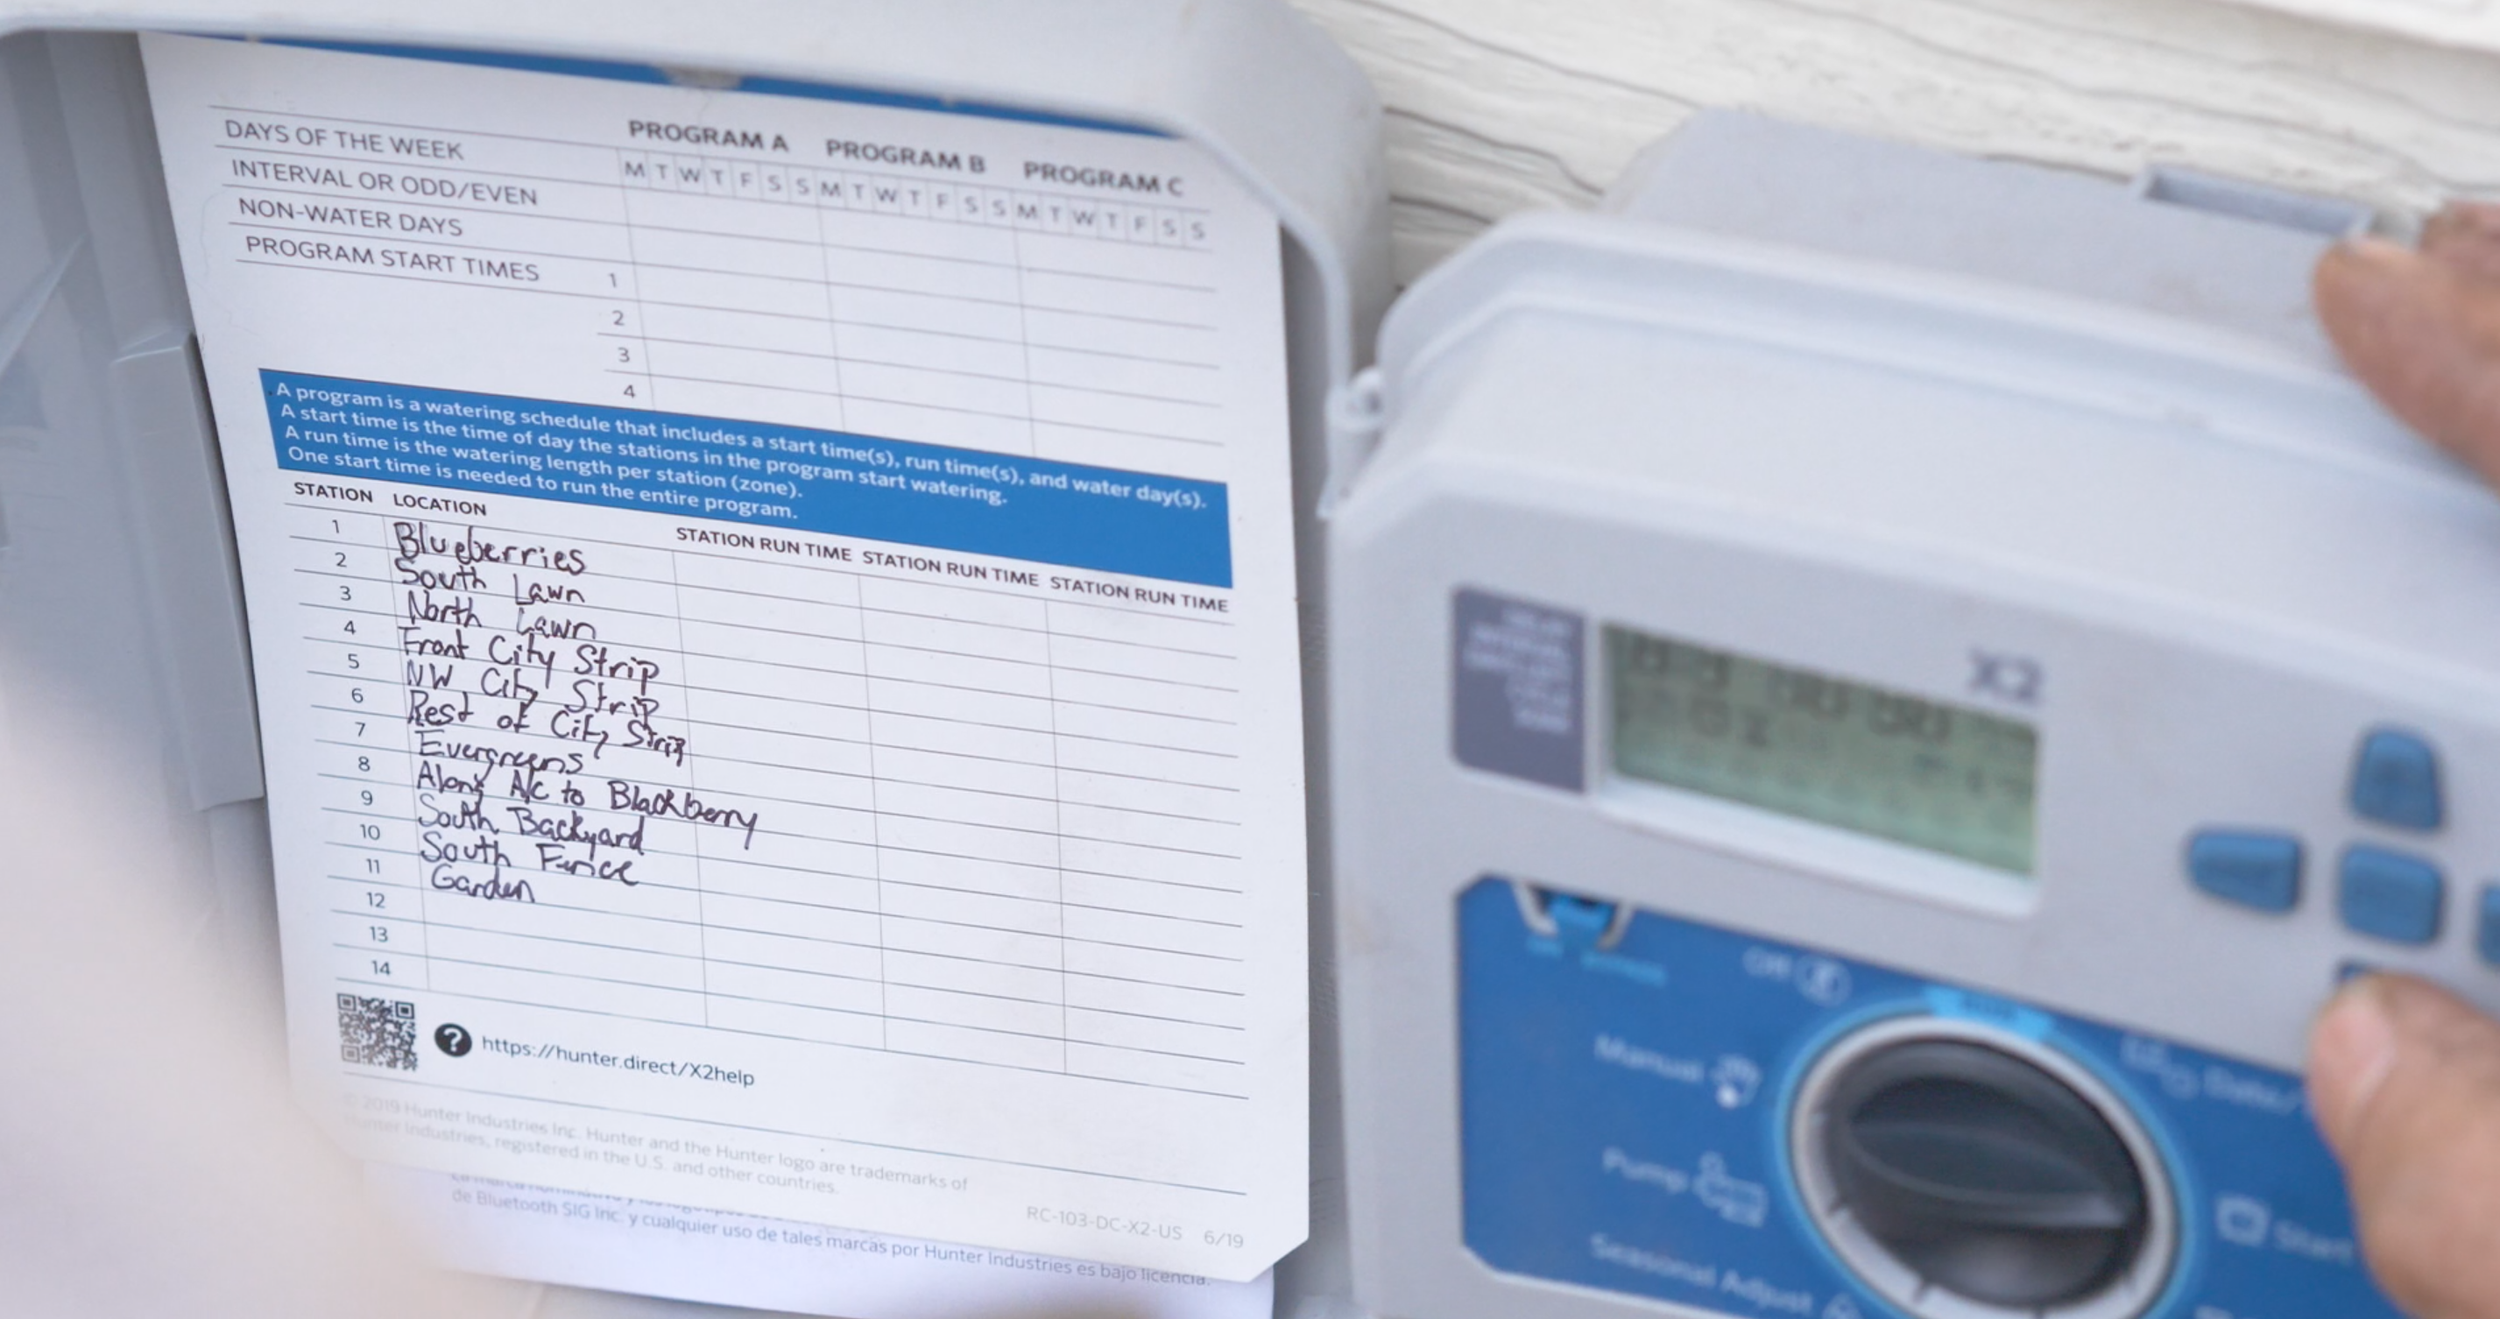 PROGRAM A PROGRAM B PROGRAM C
DAYS OF THE WEEK M T W T F S S M T W T F S S M T W T F S S
INTERVAL OR ODD/EVEN
NON-WATER DAYS
PROGRAM START TIMES 1
2
3
4
A program is a watering schedule that includes a start time(s), run time(s), and water day(s).
A start time is the time of day the stations in the program start watering.
A run time is the watering length per station (zone).
One start time is needed to run the entire program.
STATION LOCATION STATION RUN TIME STATION RUN TIME STATION RUN TIME
1 Blueberries
2 South Lawn
3 North Lawn
4 Front City Strip
5 NW City Strip
6 Rest of City Strip
7 Evergreens
8 Along A/C to Blackberry
9 South Backyard
10 South Fence
11 Garden
12
13
14
? https://hunter.direct/X2help
© 2019 Hunter Industries Inc. Hunter and the Hunter logo are trademarks of
Hunter Industries, registered in the U.S. and other countries.
RC-103-DC-X2-US 6/19
de Bluetooth SIG Inc. y cualquier uso de tales marcas por Hunter Industries es bajo licencia.
X2
Off
Manual
Pump
Seasonal Adjust
Date/
Start